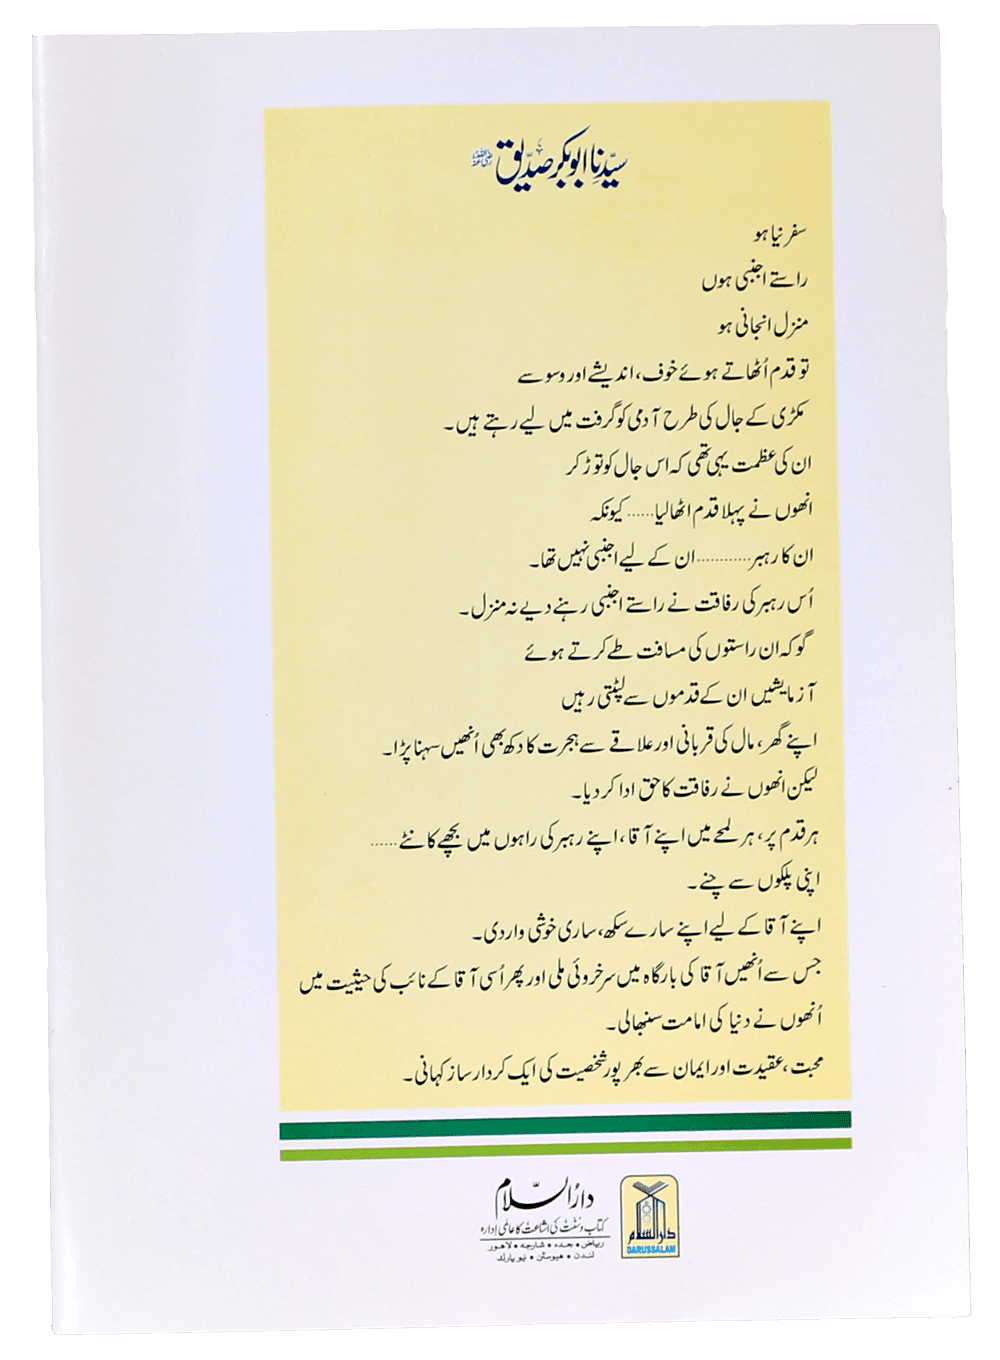 سیّدنا ابوبکر صدّیق رضی اللہ عنہ
سفر نیا ہو
راستے اجنبی ہوں
منزل انجانی ہو
تو قدم اُٹھاتے ہوئے خوف، اندیشے اور وسوسے
مکڑی کے جال کی طرح آدمی کو گرفت میں لیے رہتے ہیں۔
ان کی عظمت یہی تھی کہ اس جال کو توڑ کر
انھوں نے پہلا قدم اٹھا لیا...... کیونکہ
ان کا رہبر............ ان کے لیے اجنبی نہیں تھا۔
اُس رہبر کی رفاقت نے راستے اجنبی رہنے دیے نہ منزل۔
گو کہ ان راستوں کی مسافت طے کرتے ہوئے
آزمایشیں ان کے قدموں سے لپٹتی رہیں
اپنے گھر، مال کی قربانی اور علاقے سے ہجرت کا دکھ بھی اُنھیں سہنا پڑا۔
لیکن انھوں نے رفاقت کا حق ادا کر دیا۔
ہر قدم پر، ہر لمحے میں اپنے آقا، اپنے رہبر کی راہوں میں بچھے کانٹے......
اپنی پلکوں سے چنے۔
اپنے آقا کے لیے اپنے سارے سکھ، ساری خوشی وار دی۔
جس سے اُنھیں آقا کی بارگاہ میں سرخروئی ملی اور پھر اُسی آقا کے نائب کی حیثیت میں
اُنھوں نے دنیا کی امامت سنبھالی۔
محبت، عقیدت اور ایمان سے بھر پور شخصیت کی ایک کردار ساز کہانی۔
دارُالسّلام
کتاب و سُنّت کی اشاعت کا عالمی ادارہ
ریاض • جدہ • شارجہ • لاهور
لندن • هیوسٹن • نیو یارک
دارالسلام
DARUSSALAM